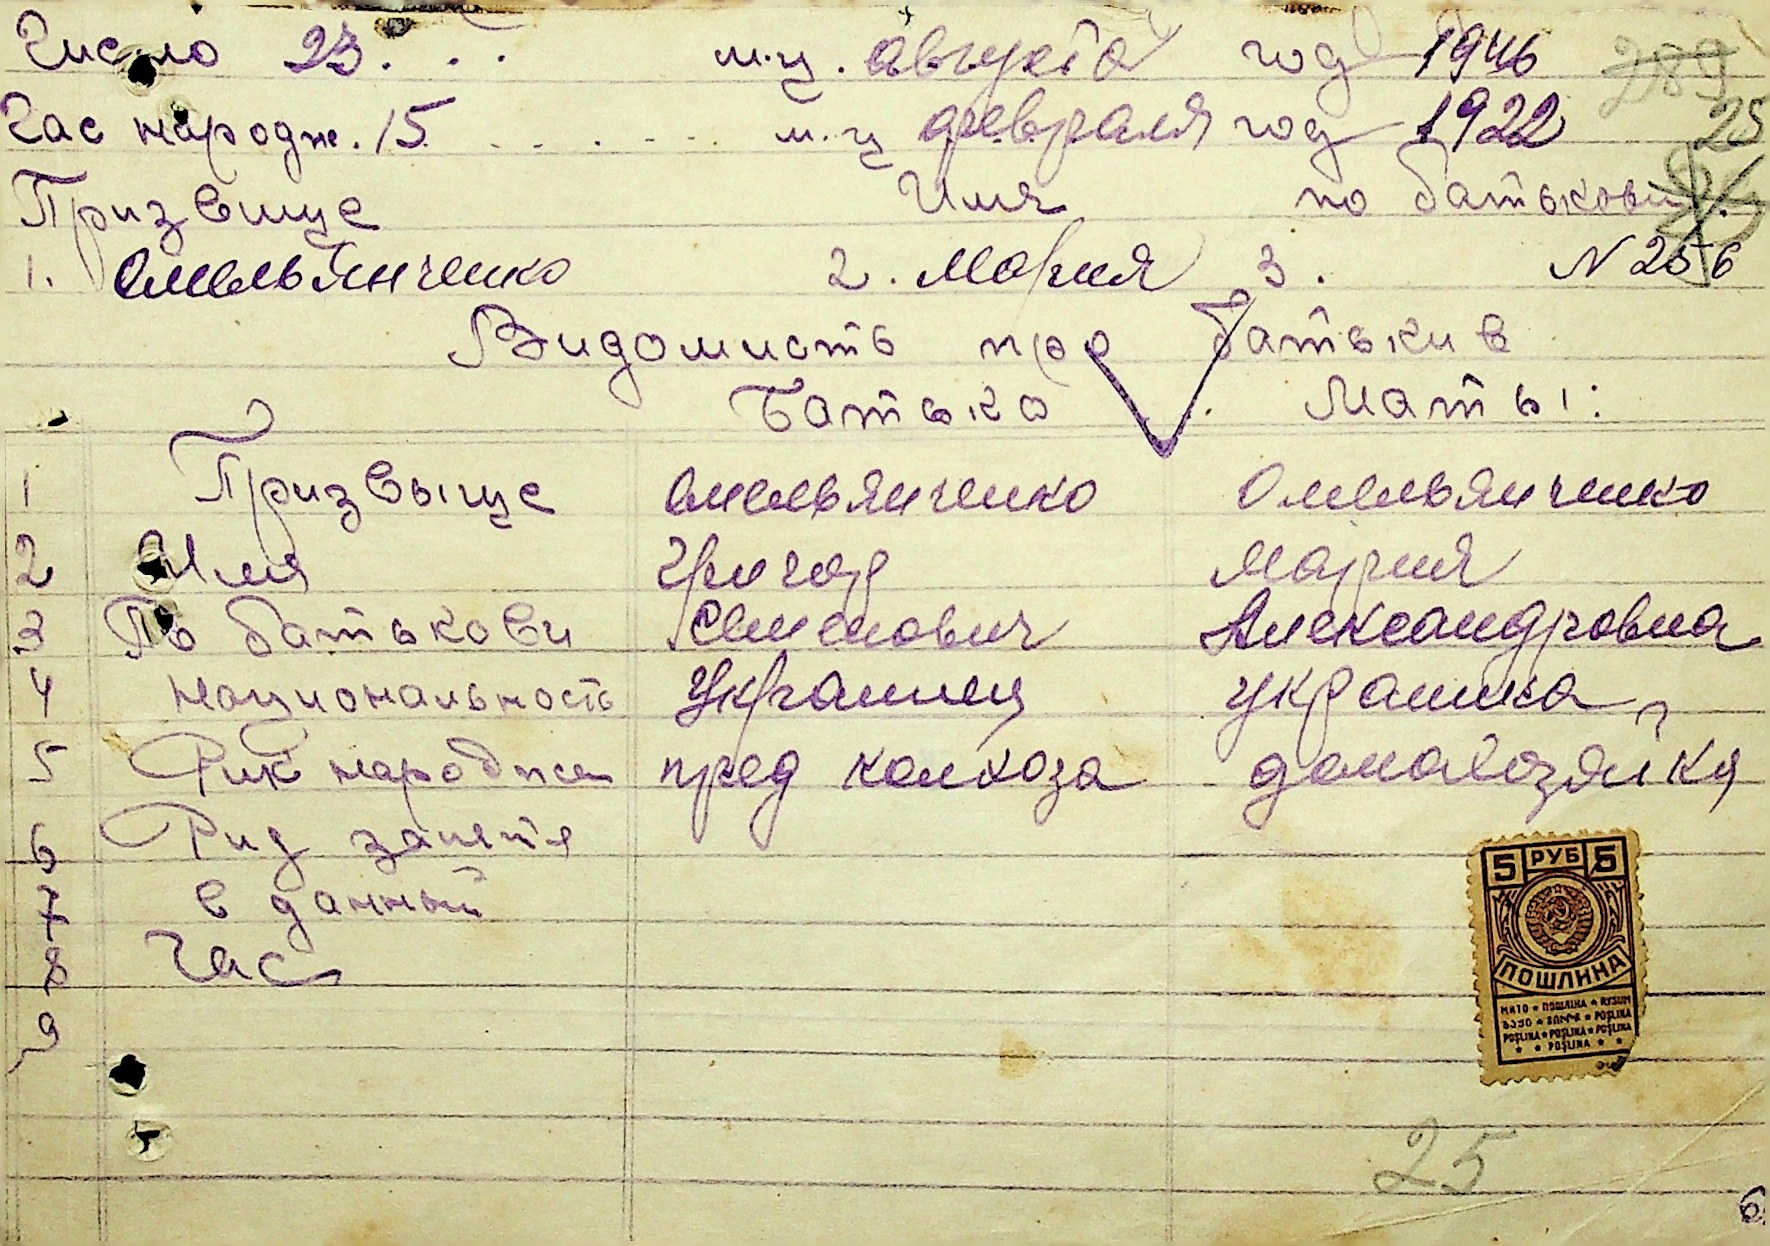 Число 23. . . м.ц. августа год 1946 289
Час народж. 15. . . . . м.ц февраля год 1922 25
Призвище Имя по батькови
1. Омельянченко 2. Мария 3. N 256
Видомисть про батькив
Батько Маты:
1 Призвыще Омельянченко Омельянченко
2 Имя Григор Мария
3 По батькови Семенович Александровна
4 национальность Украинец украинка
5 Рик народжен пред колхоза домахозяйка
6 Рид заняття
7 в данный
8 Час
9
5 РУБ 5
ПОШЛИНА
POŞLINA ★ POŞLINA ★ POŞLINA
★ ★ POŞLINA ★ ★
25
6